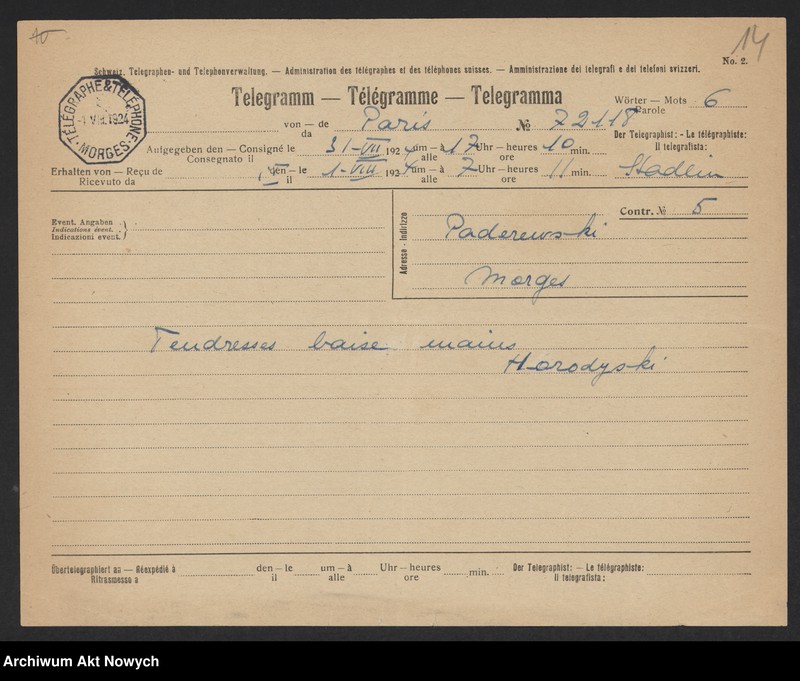 14
No. 2.
Schweiz. Telegraphen- und Telephonverwaltung. — Administration des télégraphes et des téléphones suisses. — Amministrazione dei telegrafi e dei telefoni svizzeri.
Telegramm — Télégramme — Telegramma
Wörter — Mots 6
Parole
TÉLÉGRAPHE & TÉLÉPHONE
-1.VIII.1924
MORGES
von — de Paris № 72118
da
Der Telegraphist: - Le télégraphiste:
Il telegrafista:
Aufgegeben den — Consigné le 31-VII 1924 um — à 17 Uhr — heures 10 min.
Consegnato il alle ore
Stadlin
Erhalten von — Reçu de den — le 1-VIII 1924 um — à 7 Uhr — heures 11 min.
Ricevuto da il alle ore
Contr. № 5
Event. Angaben
Indications évent.
Indicazioni event.
Adresse - Indirizzo
Paderewski
Morges
Tendresses baise mains
Horodyski
Übertelegraphiert an — Réexpédié à den — le um — à Uhr — heures min. Der Telegraphist: — Le télégraphiste:
Ritrasmesso a il alle ore Il telegrafista:
Archiwum Akt Nowych